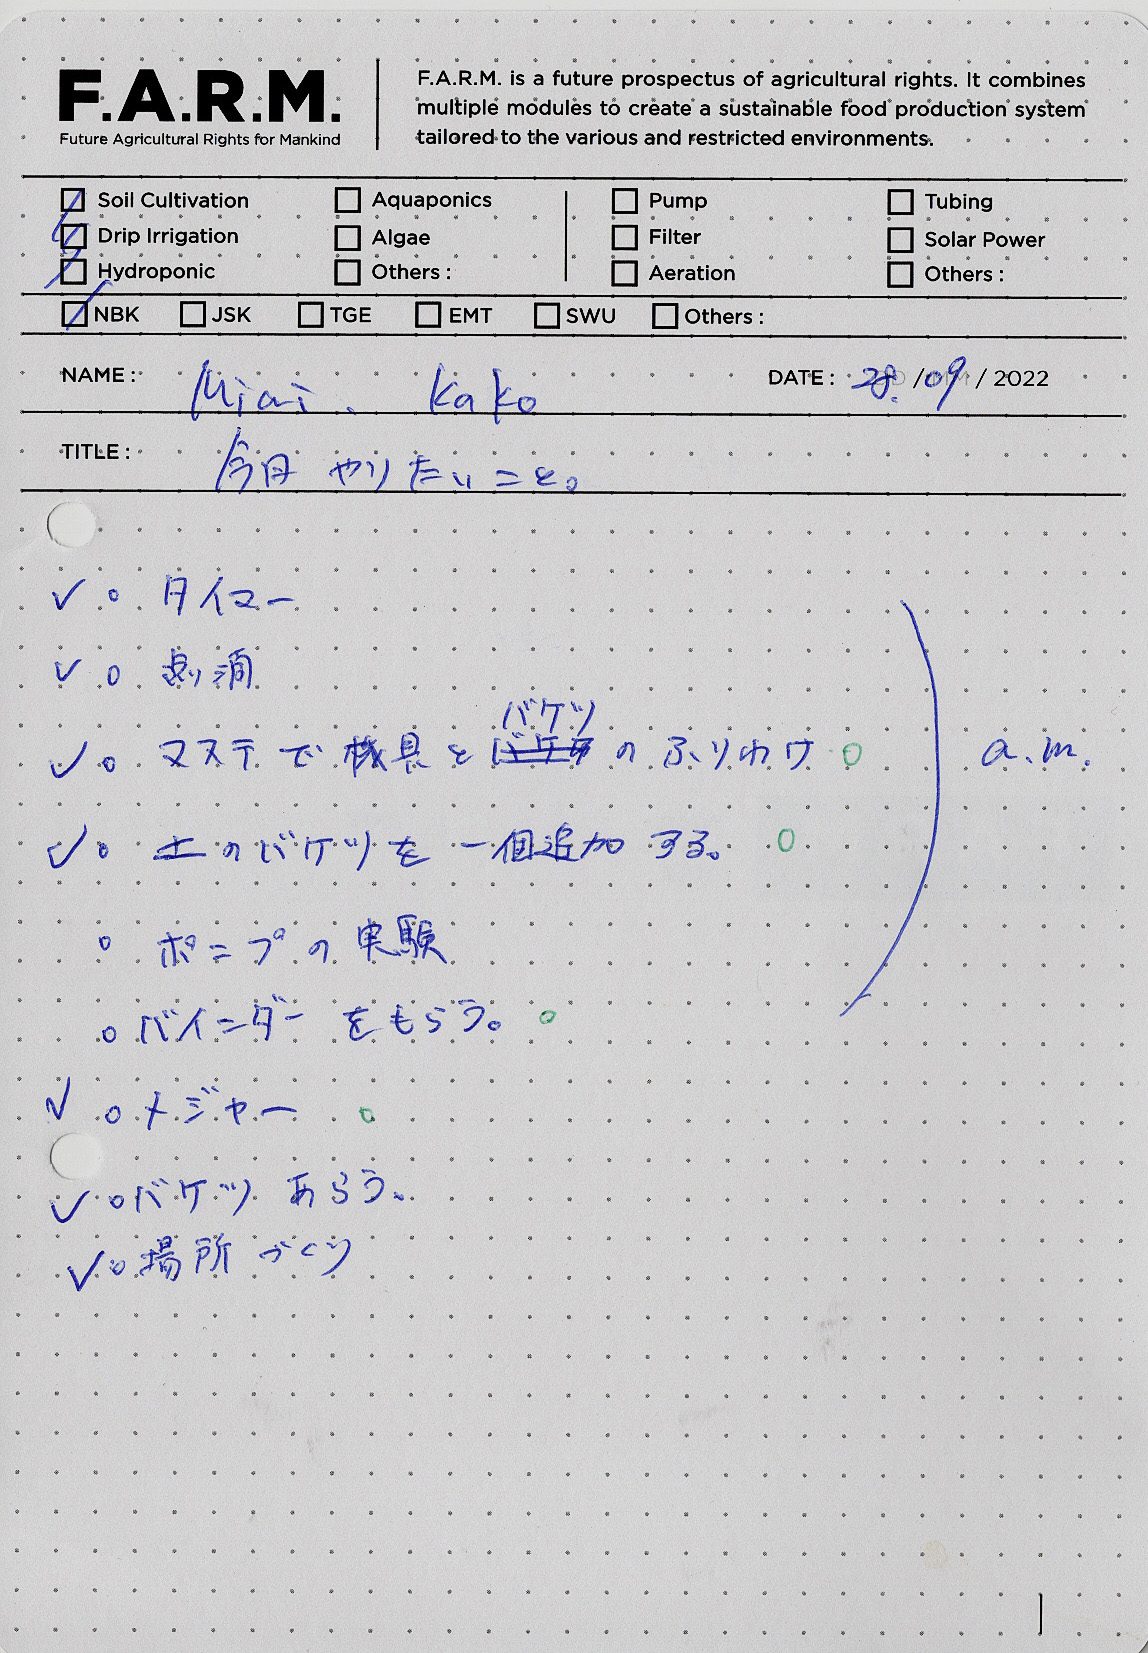 F.A.R.M.
Future Agricultural Rights for Mankind
F.A.R.M. is a future prospectus of agricultural rights. It combines
multiple modules to create a sustainable food production system
tailored to the various and restricted environments.
Soil Cultivation
Drip Irrigation
Hydroponic
Aquaponics
Algae
Others :
Pump
Filter
Aeration
Tubing
Solar Power
Others :
NBK JSK TGE EMT SWU Others :
NAME : Miai. Kako
DATE : 28 / 09 / 2022
TITLE : 今日 やりたいこと。
タイマー
バケツ
マステで機具と の ふりわけ
a.m.
土のバケツを一個追加する。
ポンプの実験
バインダーをもらう。
メジャー
バケツ あらう。
場所づくり